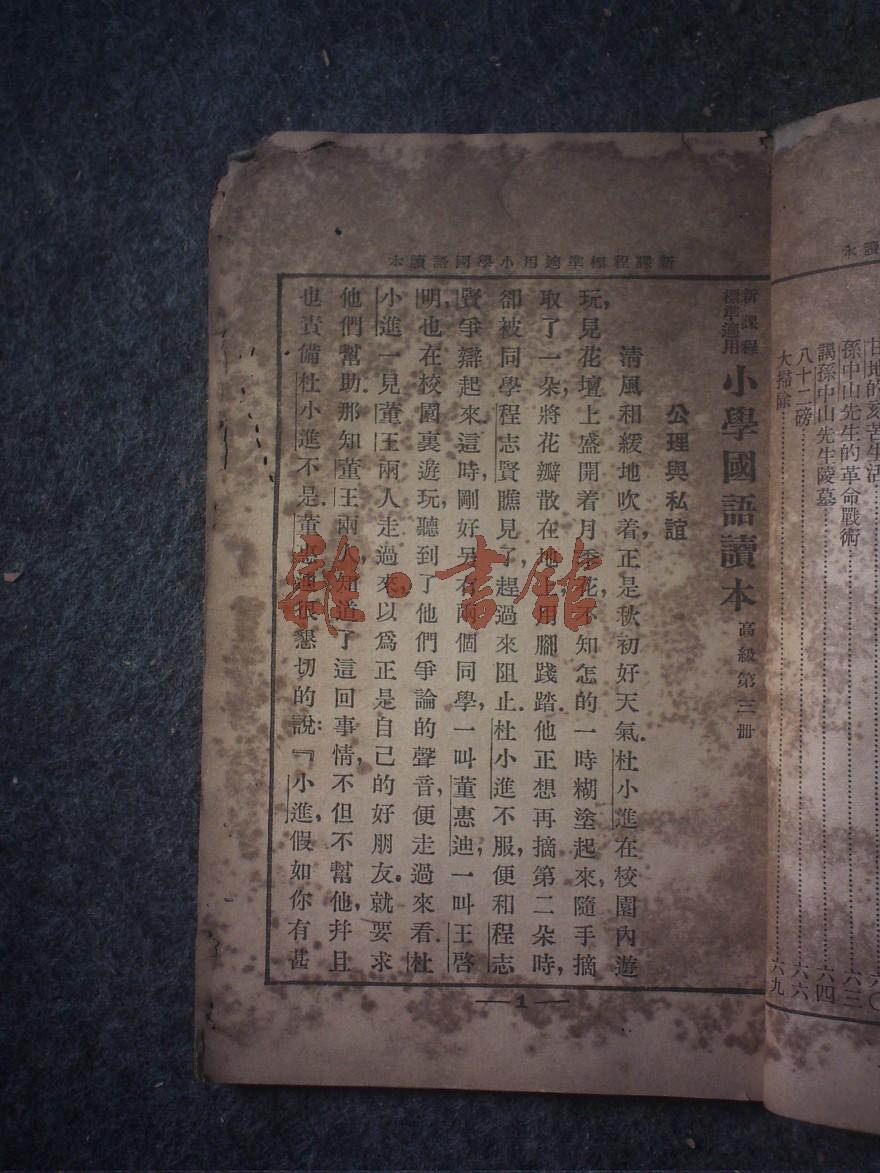 讀本
甘地的刻苦生活……六〇
孫中山先生的革命戰術……六三
謁孫中山先生陵墓……六四
八十二磅……六六
大掃除……六九
新課程標準適用小學國語讀本
新課程標準適用 小學國語讀本 高級第三冊
公理與私誼
清風和緩地吹着,正是秋初好天氣.杜小進在校園內遊
玩,見花壇上盛開着月季花,不知怎的一時糊塗起來,隨手摘
取了一朵,將花瓣散在地上,用腳踐踏.他正想再摘第二朵時,
卻被同學程志賢瞧見了,趕過來阻止.杜小進不服,便和程志
賢爭辯起來.這時,剛好另有兩個同學,一叫董惠迪,一叫王啓
明,也在校園裏遊玩,聽到了他們爭論的聲音,便走過來看.杜
小進一見董王兩人走過來,以爲正是自己的好朋友.就要求
他們幫助.那知董王兩人,知道了這回事情,不但不幫他,幷且
也責備杜小進不是.董惠迪很懇切的說:『小進,假如你有甚
1
雜·書館